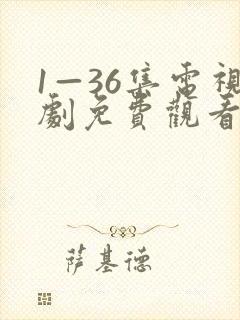 1—36集雷視
劇免費觀看
萨基德